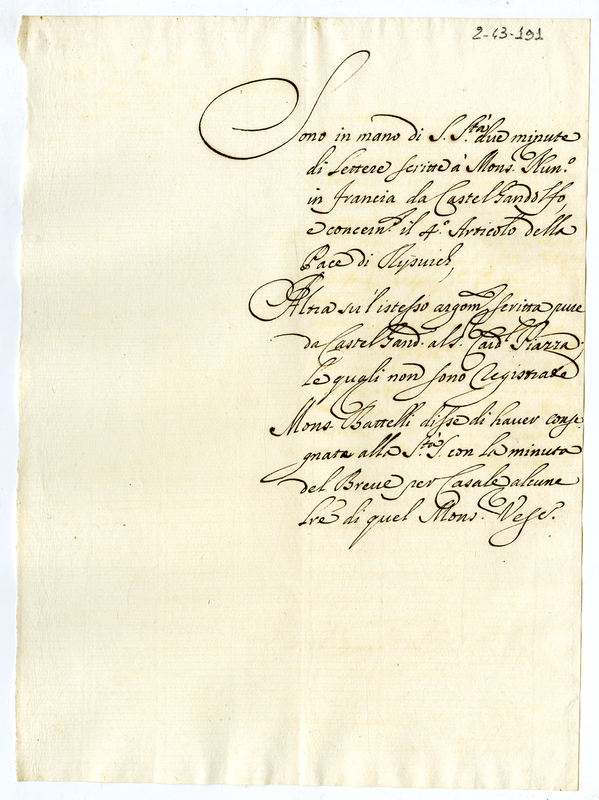 2-43-191
Sono in mano di S. S.tà due minute
di Lettere scritte à Mons. Nun.o
in Francia da Castel Gandolfo,
e concern.ti il 4.o Articolo della
Pace di Rysvich,
Altra su l'istesso argom.to scritta pure
da Castel Gand. al S. Card. Piazza;
le quali non sono registrate
Mons. Battelli disse di haver conse-
gnate alla S.tà S. con la minuta
del Breve per Casale alcune
lre di quel Mons. Vesc.